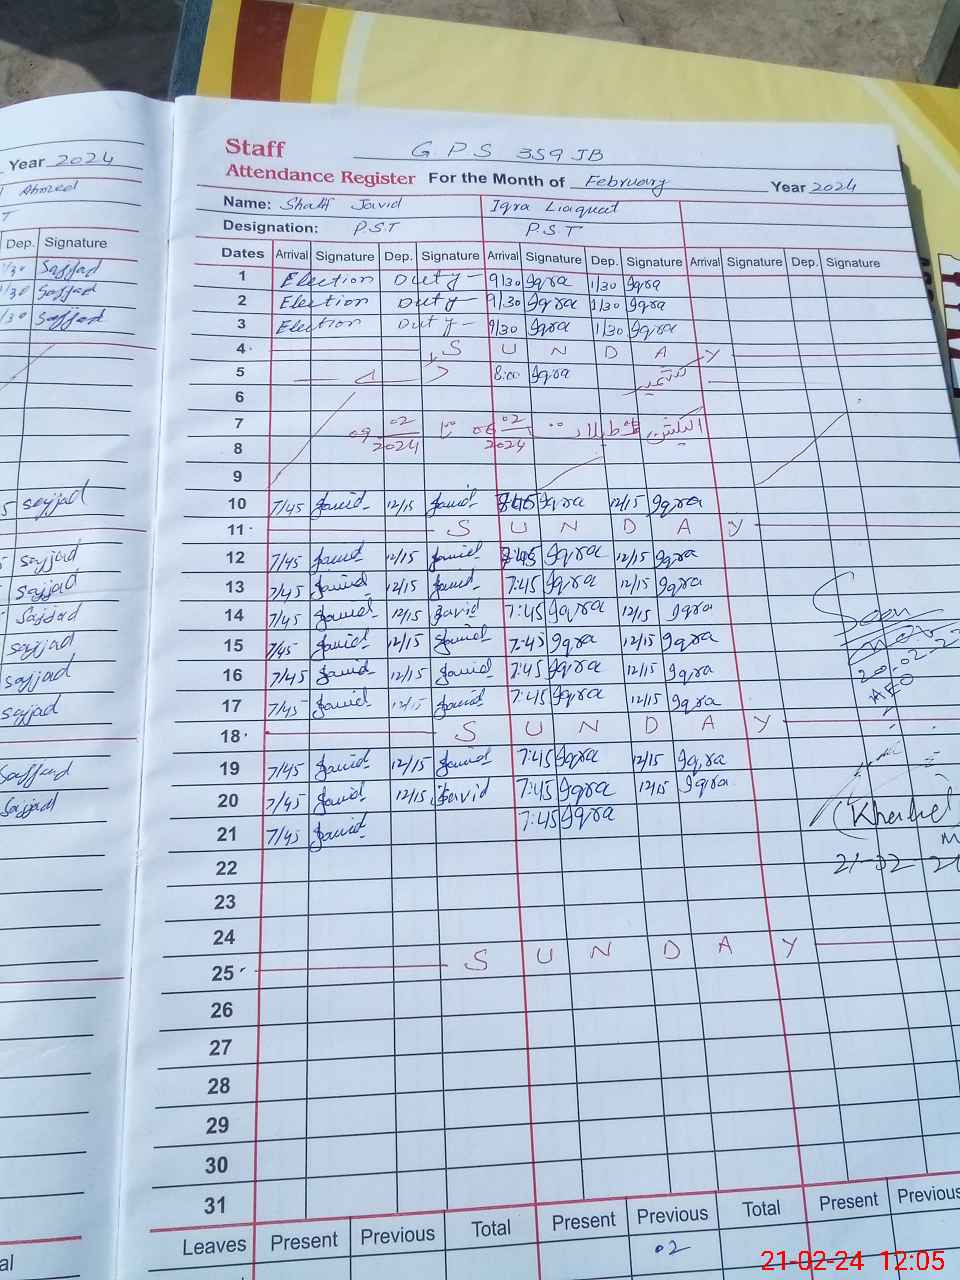 Year 2024
Ahmed
Dep. Signature
1/30 Sajjad
1/30 Sajjad
1/30 Sajjad
Sajjad
Sajjad
Sajjad
Sajjad
Sajjad
Sajjad
Sajjad
Sajjad
Sajjad
Staff G.P.S 359 JB
Attendance Register For the Month of February Year 2024
Name: Javid Iqra Liaquat
Designation: P.S.T P.S.T
Dates Arrival Signature Dep. Signature Arrival Signature Dep. Signature Arrival Signature Dep. Signature
1 Election Duty 9/30 Iqra 1/30 Iqra
2 Election Duty 9/30 Iqra 1/30 Iqra
3 Election Duty 9/30 Iqra 1/30 Iqra
4 S U N D A Y
5 8:00 Iqra
6
7 09 02 2024 تا 06 02 2024 الیکشن
8
9
10 7/45 Javid 12/15 Javid 7:45 Iqra 12/15 Iqra
11 S U N D A Y
12 7/45 Javid 12/15 Javid 7:45 Iqra 12/15 Iqra
13 7/45 Javid 12/15 Javid 7:45 Iqra 12/15 Iqra
14 7/45 Javid 12/15 Javid 7:45 Iqra 12/15 Iqra
15 7/45 Javid 12/15 Javid 7:45 Iqra 12/15 Iqra
16 7/45 Javid 12/15 Javid 7:45 Iqra 12/15 Iqra
17 7/45 Javid 12/15 Javid 7:45 Iqra 12/15 Iqra
18 S U N D A Y
19 7/45 Javid 12/15 Javid 7:45 Iqra 12/15 Iqra
20 7/45 Javid 12/15 Javid 7:45 Iqra 12/15 Iqra
21 7/45 Javid 7:45 Iqra
22
23
24
25 S U N D A Y
26
27
28
29
30
31
20-02-2
AEO
21-02-2
Leaves Present Previous Total Present Previous Total Present Previous
02
21-02-24 12:05